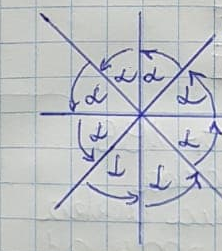 α α
α α
α α
α α